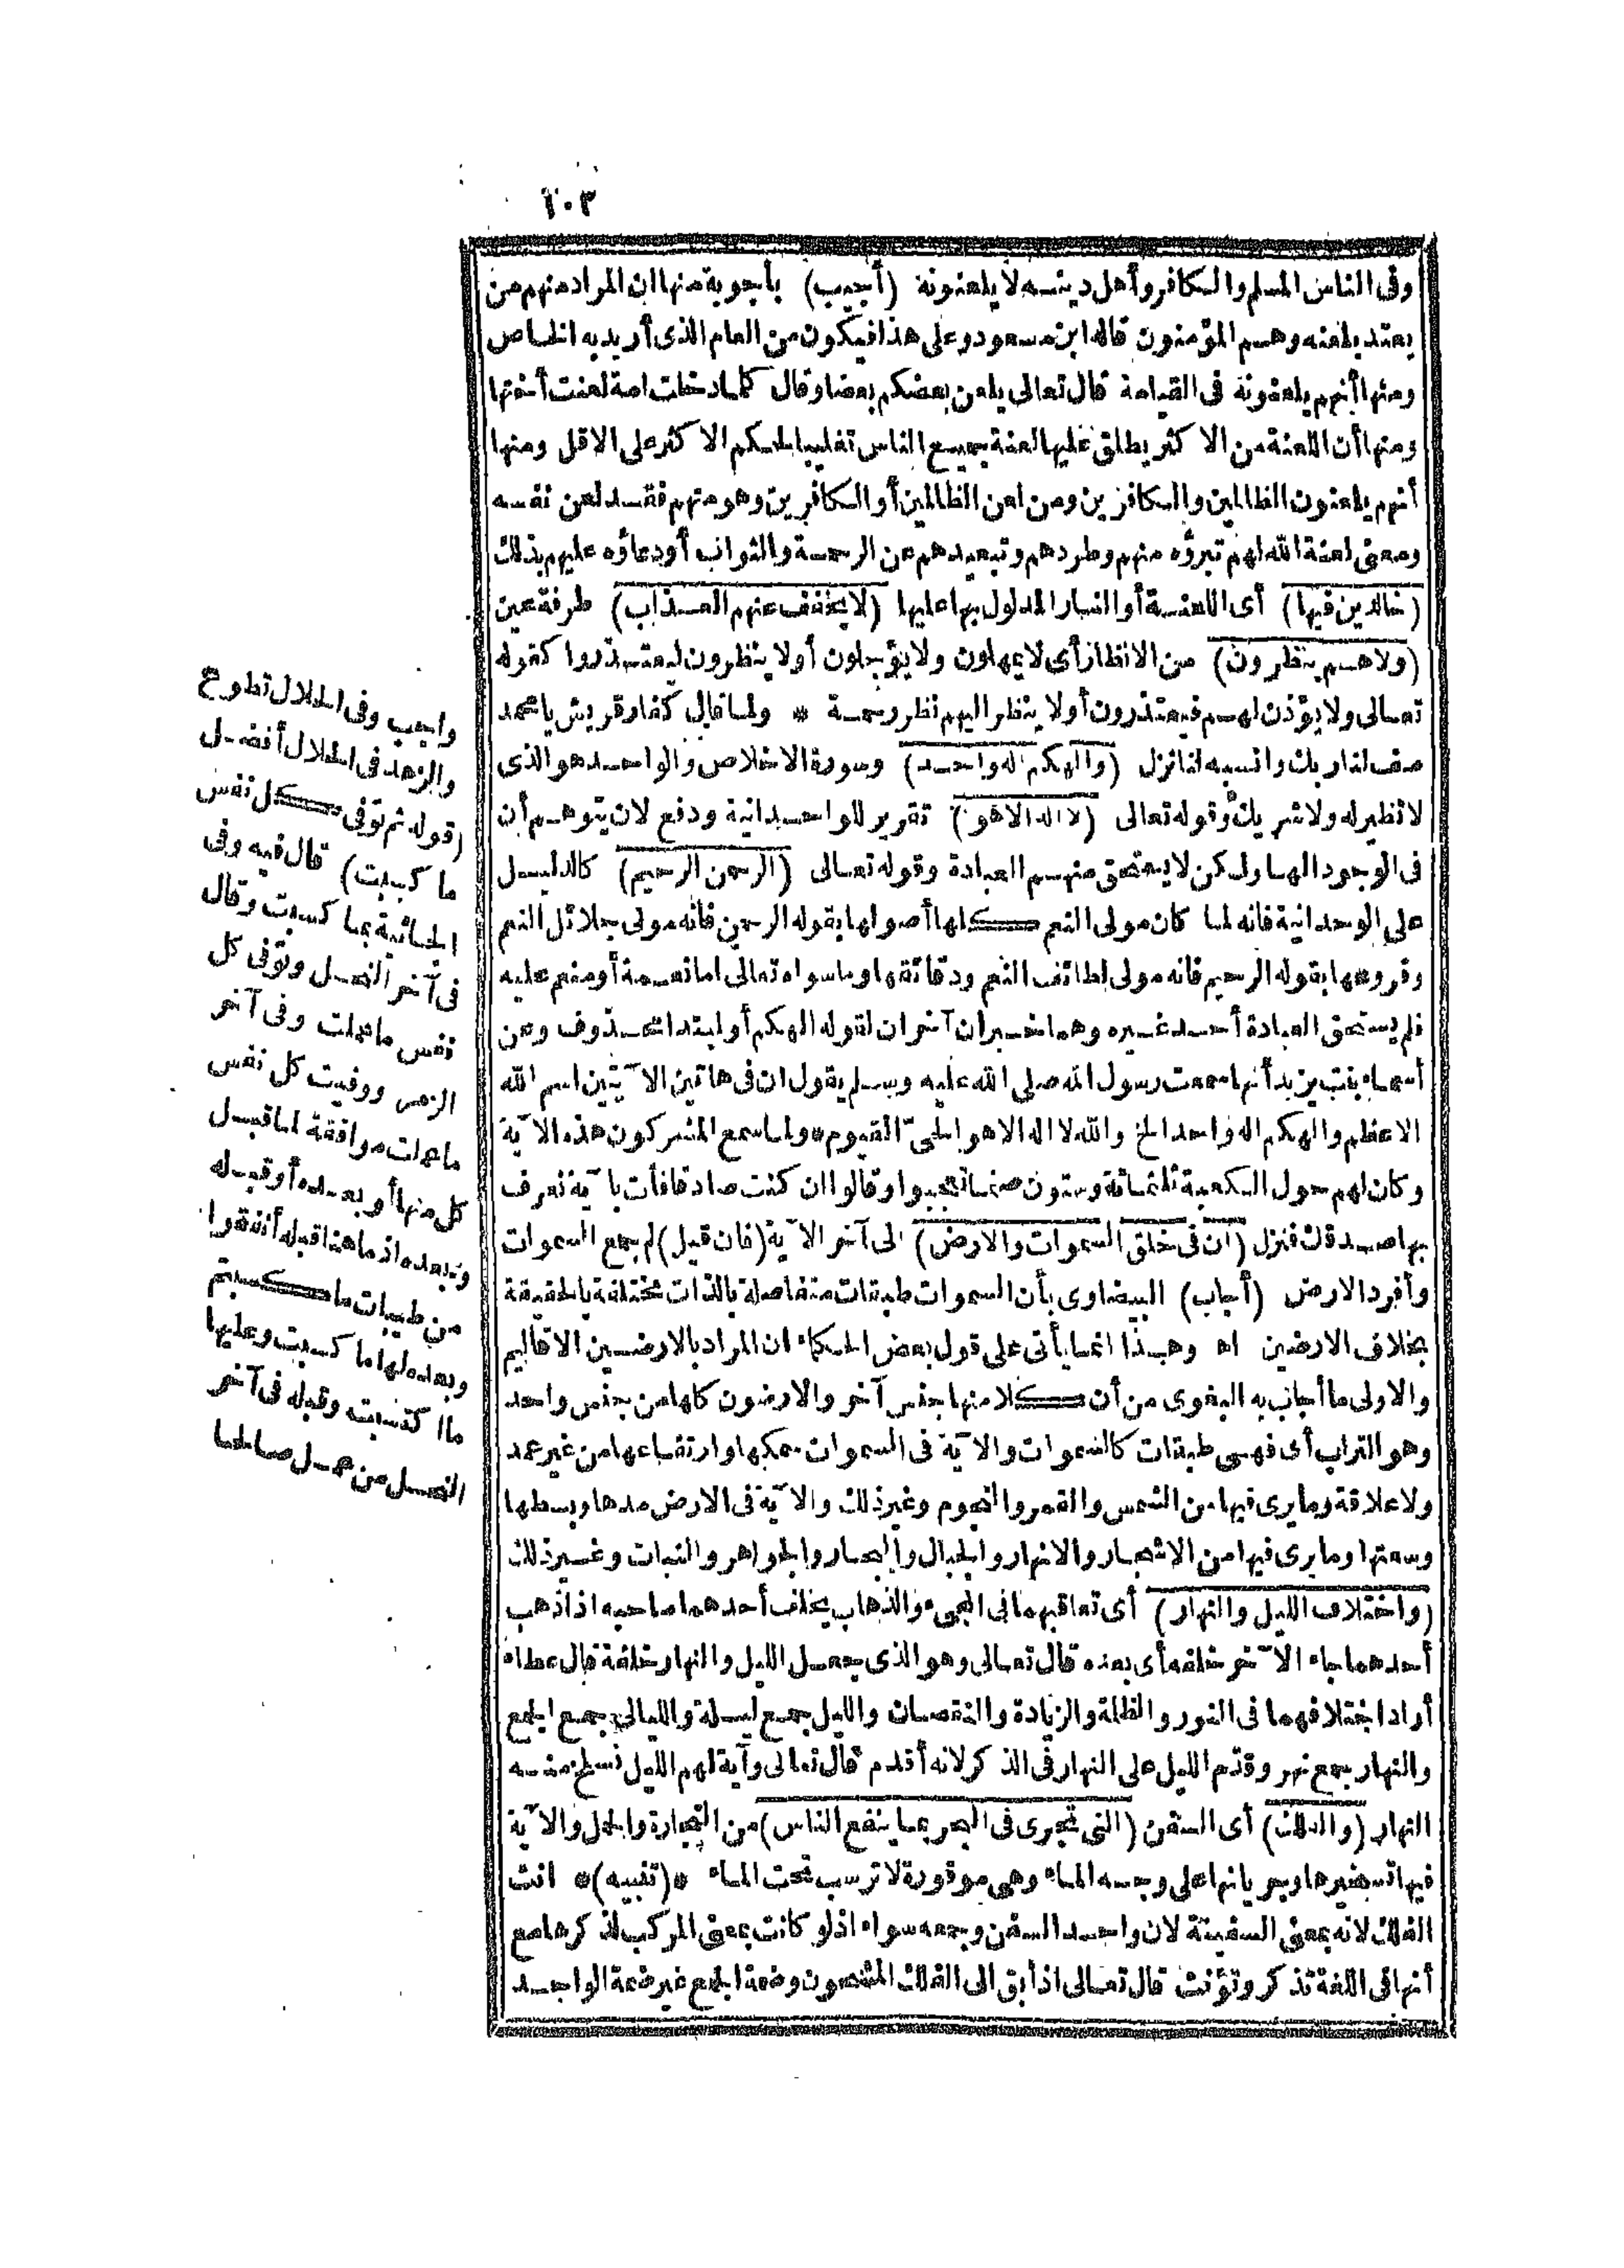 ١٠٣
وفى الناس المسلم والكافر وأهل دينه لا يلعنونه (أجيب) بأجوبة منها ان المراد منهم من
يعتد بلعنه وهم المؤمنون قاله ابن مسعود وعلى هذا فيكون من العام الذى أريد به الخاص
ومنها أنهم يلعنونه فى القيامة قال تعالى يلعن بعضكم بعضا وقال كلما دخلت امة لعنت أختها
ومنها أن اللعنة من الاكثر يطلق عليها لعنة جميع الناس تغليبا لحكم الاكثر على الاقل ومنها
أنهم يلعنون الظالمين والكافرين ومن لعن الظالمين أو الكافرين وهو منهم فقد لعن نفسه
ومعنى لعنة الله لهم تبرؤه منهم وطردهم وتبعيدهم عن الرحمة والثواب أو دعاؤه عليهم بذلك
(خالدين فيها) أى اللعنة أو النار المدلول بها عليها (لا يخفف عنهم العذاب) طرفة عين
(ولا هم ينظرون) من الانظار أى لا يمهلون ولا يؤجلون أولا ينظرون ليعتذروا كقوله
تعالى ولا يؤذن لهم فيعتذرون أولا ينظر اليهم نظر رحمة * ولما قال كفار قريش يا محمد
صف لنا ربك وانسبه لنا نزل (والهكم اله واحد) وسورة الاخلاص والواحد هو الذى
لا نظير له ولا شريك وقوله تعالى (لا اله الا هو) تقرير للواحدانية ودفع لان يتوهم أن
فى الوجود الها ولكن لا يستحق منهم العبادة وقوله تعالى (الرحمن الرحيم) كالدليل
على الوحدانية فانه لما كان مولى النعم كلها أصولها بقوله الرحمن فانه مولى جلائل النعم
وفروعها بقوله الرحيم فانه مولى لطائف النعم ودقائقها وما سواه تعالى اما نعمة أو منعم عليه
فلم يستحق العبادة أحد غيره وهما خبران آخران لقوله الهكم أو لمبتدا محذوف وعن
أسماء بنت يزيد أنها سمعت رسول الله صلى الله عليه وسلم يقول ان فى هاتين الآيتين اسم الله
الاعظم والهكم اله واحد الخ والله لا اله الا هو الحىّ القيوم * ولما سمع المشركون هذه الآية
وكان لهم حول الكعبة ثلثمائة وستون صنما تعجبوا وقالوا ان كنت صادقا فأت بآية نعرف
بها صدقك فنزل (ان فى خلق السموات والارض) الى آخر الآية (فان قيل) لم جمع السموات
وأفرد الارض (أجاب) البيضاوى بأن السموات طبقات متفاصلة بالذات مختلفة بالحقيقة
بخلاف الارضين اه وهذا انما يأتى على قول بعض الحكماء ان المراد بالارضين الاقاليم
والاولى ما أجاب به البغوى من أن كلا منها جنس آخر والارضون كلها من جنس واحد
وهو التراب أى فهى طبقات كالسموات والآية فى السموات سمكها وارتفاعها من غير عمد
ولا علاقة وما يرى فيها من الشمس والقمر والنجوم وغير ذلك والآية فى الارض مدها وبسطها
وسعتها وما يرى فيها من الاشجار والانهار والجبال والبحار والجواهر والنبات وغير ذلك
(واختلاف الليل والنهار) أى تعاقبهما فى المجىء والذهاب يخلف أحدهما صاحبه اذا ذهب
أحدهما جاء الآخر خلفه أى بعده قال تعالى وهو الذى جعل الليل والنهار خلفة قال عطاء
أراد اختلافهما فى النور والظلمة والزيادة والنقصان والليل جمع ليلة والليالى جمع الجمع
والنهار جمع نهر وقدّم الليل على النهار فى الذكر لانه أقدم قال تعالى وآية لهم الليل نسلخ منه
النهار (والفلك) أى السفن (التى تجرى فى البحر بما ينفع الناس) من التجارة والحمل والآية
فيها تسخيرها وجريانها على وجه الماء وهى موقورة لا ترسب تحت الماء *(تنبيه)* انث
الفلك لانه بمعنى السفينة لان واحد السفن وجمعه سواء اذ لو كانت بمعنى المركب لذكرها مع
أنها فى اللغة تذكر وتؤنث قال تعالى اذ أبق الى الفلك المشحون وضمة الجمع غير ضمة الواحد
واجب وفى الحلال تطوع
والزهد فى الحلال أفضل
(قوله ثم توفى كل نفس
ما كسبت) قال فيه وفى
الجاثية بما كسبت وقال
فى آخر النحل وتوفى كل
نفس ما عملت وفى آخر
الزمر ووفيت كل نفس
ما عملت موافقة لما قبل
كل منها أو بعده أو قبله
وبعده اذ ما هنا قبله أنفقوا
من طيبات ما كسبتم
وبعده لها ما كسبت وعليها
ما اكتسبت وقبله فى آخر
النحل من عمل صالحا